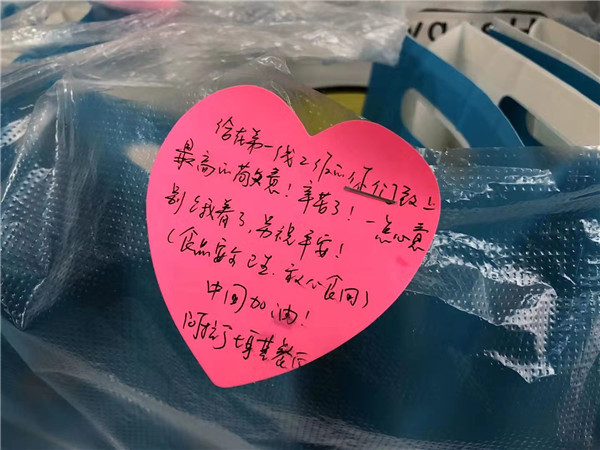 给在第一线工作的你们致上
最高的敬意！辛苦了！一点心意
别饿着了，另祝平安！
（食品安全卫生、放心食用）
中国加油！
阿拉丁土耳其餐厅